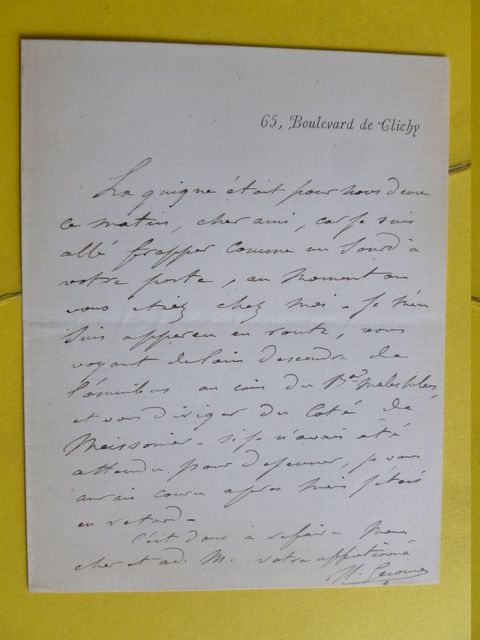 65, Boulevard de Clichy
La guigne était pour nous deux
ce matin, cher ami, car je suis
allé frapper comme un sourd à
votre porte, au moment où
vous étiez chez moi. Je m'en
suis apperçu en route, vous
voyant de loin descendre de
l'omnibus au coin du B.ard Malesherbes,
et vous diriger du coté de
Meissonier. Si je n'avais été
attendu pour dejeuner, je vous
aurais couru après mais j'étais
en retard.
C'est donc à refaire Mon
cher et ad. M. votre affectionné